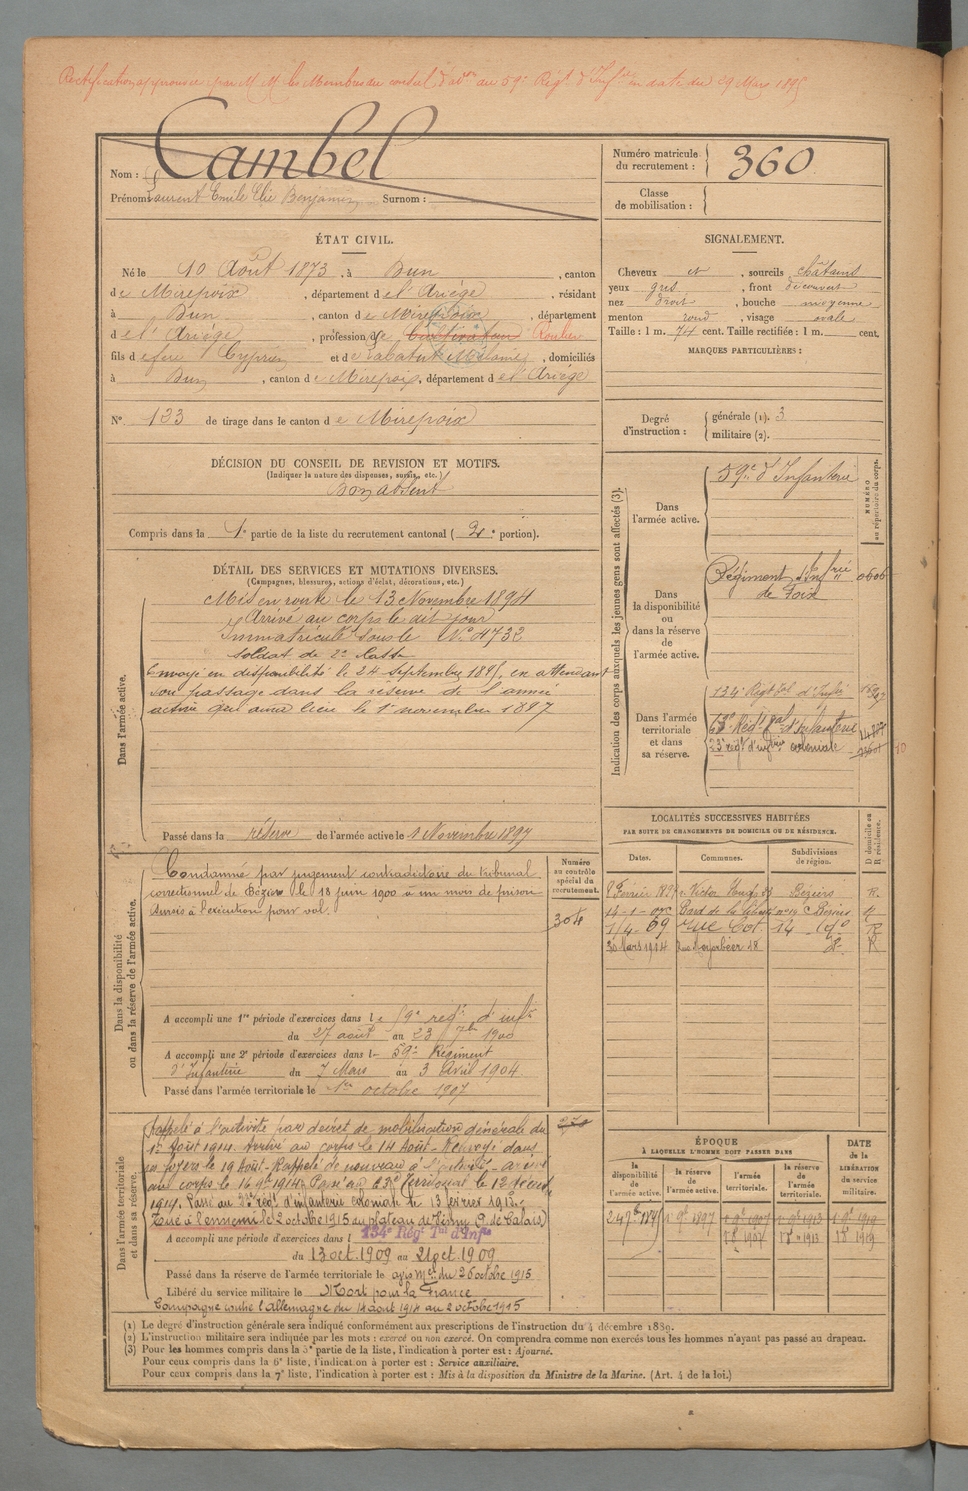 Rectification approuvée par M.M. les Membres du conseil d'adon au 59e Régt d'Infie en date du 29 Mars 1895
Nom : Cambel
Prénoms Laurent Emile Elie Benjamin Surnom :
Numéro matricule du recrutement : 360
Classe de mobilisation :
ÉTAT CIVIL.
Né le 10 Août 1873, à Dun, canton
de Mirepoix, département de l'Ariège, résidant
à Dun, canton de Mirepoix, département
de l'Ariège, profession de Cultivateur Roulier
fils de feu Cyprien et de Sabatut Mélanie, domiciliés
à Dun, canton de Mirepoix, département de l'Ariège
N° 133 de tirage dans le canton de Mirepoix
SIGNALEMENT.
Cheveux et, sourcils châtains
yeux gris, front découvert
nez droit, bouche moyenne
menton rond, visage ovale
Taille : 1 m. 74 cent. Taille rectifiée : 1 m. cent.
MARQUES PARTICULIÈRES :
Degré d'instruction : générale (1). 3
militaire (2).
DÉCISION DU CONSEIL DE REVISION ET MOTIFS.
(Indiquer la nature des dispenses, sursis, etc.)
Bon absent
Compris dans la 1e partie de la liste du recrutement cantonal (2e portion).
DÉTAIL DES SERVICES ET MUTATIONS DIVERSES.
(Campagnes, blessures, actions d'éclat, décorations, etc.)
Dans l'armée active.
Mis en route le 13 Novembre 1894
Arrivé au corps le dit jour
Immatriculé sous le N° 4732
Soldat de 2e classe
Envoyé en disponibilité le 24 septembre 1895, en attendant
son passage dans la réserve de l'armée
active qui aura lieu le 1er novembre 1897
Passé dans la réserve de l'armée active le 1 Novembre 1897
Indication des corps auxquels les jeunes gens sont affectés (3).
NUMÉRO au répertoire du corps.
Dans l'armée active.
59e d'Infanterie
Dans la disponibilité ou dans la réserve de l'armée active.
Régiment d'Infrie
de Foix
Dans l'armée territoriale et dans sa réserve.
134e Régt tal d'Infie
63e Régt tal d'Infanterie
23e régt d'infrie coloniale
LOCALITÉS SUCCESSIVES HABITÉES
PAR SUITE DE CHANGEMENTS DE DOMICILE OU DE RÉSIDENCE.
Dates. Communes. Subdivisions de région. D domicile ou R résidence.
8 Février 189 r. Victor Hugo 58 Béziers R.
14-1- Béziers R
1/4-09 rue Cot 14 do R
30 Mars 1914 Rue Meyerbeer 18 do R
Dans la disponibilité ou dans la réserve de l'armée active.
Numéro au contrôle spécial du recrutement.
304
Condamné par jugement contradictoire du tribunal
correctionnel de Béziers le 18 juin 1900 à un mois de prison
sursis à l'exécution pour vol.
A accompli une 1re période d'exercices dans le 59e régt d'infie
du 27 août au 23 7bre 1900
A accompli une 2e période d'exercices dans le 59e Régiment
d'Infanterie du 7 Mars au 3 Avril 1904
Passé dans l'armée territoriale le 1er octobre 1907
Dans l'armée territoriale et dans sa réserve.
Rappelé à l'activité par décret de mobilisation générale du
1er Août 1914. Arrivé au corps le 14 Août - Renvoyé dans
ses foyers le 19 Août - Rappelé de nouveau à l'activité - arrivé
au corps le 16 9bre 1914. Passé au 63e territorial le 12 décembre
1914. Passé au 23e régt d'infanterie coloniale le 13 février 1915.
Tué à l'ennemi le 2 octobre 1915 au plateau de Vimy (P. de Calais)
A accompli une période d'exercices dans l 134e Régt Tal d'Infie
du 13 oct. 1909 au 21 oct. 1909
Passé dans la réserve de l'armée territoriale le avis Mel du 26 octobre 1915
Libéré du service militaire le Mort pour la France
Campagne contre l'Allemagne du 14 août 1914 au 2 octobre 1915
ÉPOQUE
À LAQUELLE L'HOMME DOIT PASSER DANS
DATE de la LIBÉRATION du service militaire.
la disponibilité de l'armée active. la réserve de l'armée active. l'armée territoriale. la réserve de l'armée territoriale.
24 7bre 1895 1er 9bre 1897 1er 9bre 1907 1er 9bre 1913 1er 9bre 1919
1er 8bre 1907 1er 8bre 1913 1er 8bre 1919
(1) Le degré d'instruction générale sera indiqué conformément aux prescriptions de l'instruction du 4 décembre 1889.
(2) L'instruction militaire sera indiquée par les mots : exercé ou non exercé. On comprendra comme non exercés tous les hommes n'ayant pas passé au drapeau.
(3) Pour les hommes compris dans la 5e partie de la liste, l'indication à porter est : Ajourné.
Pour ceux compris dans la 6e liste, l'indication à porter est : Service auxiliaire.
Pour ceux compris dans la 7e liste, l'indication à porter est : Mis à la disposition du Ministre de la Marine. (Art. 4 de la loi.)